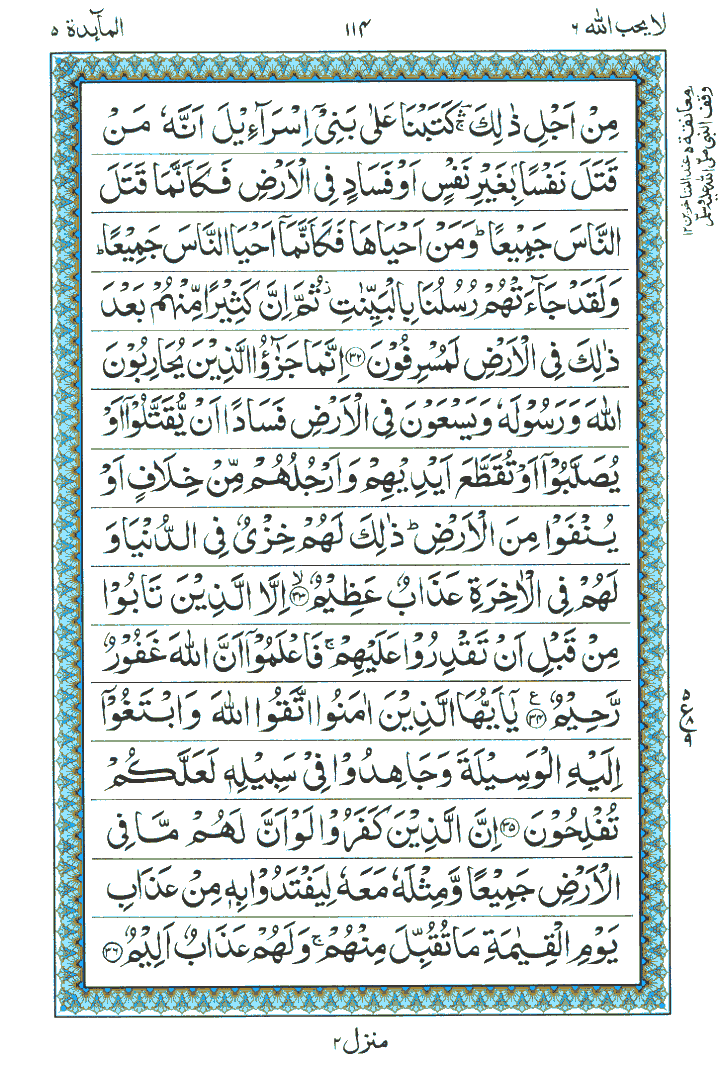 لا یحب اللہ ۶
۱۱۴
المآىِٕدة ۵
مِنْ اَجْلِ ذٰلِكَ ۛۚ كَتَبْنَا عَلٰی بَنِیْۤ اِسْرَآءِیْلَ اَنَّهٗ مَنْ
قَتَلَ نَفْسًۢا بِغَیْرِ نَفْسٍ اَوْ فَسَادٍ فِی الْاَرْضِ فَكَاَنَّمَا قَتَلَ
النَّاسَ جَمِیْعًا ؕ وَمَنْ اَحْیَاهَا فَكَاَنَّمَاۤ اَحْیَا النَّاسَ جَمِیْعًا ؕ
وَلَقَدْ جَآءَتْهُمْ رُسُلُنَا بِالْبَیِّنٰتِ ؗ ثُمَّ اِنَّ كَثِیْرًا مِّنْهُمْ بَعْدَ
ذٰلِكَ فِی الْاَرْضِ لَمُسْرِفُوْنَ ﴿۳۲﴾ اِنَّمَا جَزٰٓؤُا الَّذِیْنَ یُحَارِبُوْنَ
اللّٰهَ وَرَسُوْلَهٗ وَیَسْعَوْنَ فِی الْاَرْضِ فَسَادًا اَنْ یُّقَتَّلُوْۤا اَوْ
یُصَلَّبُوْۤا اَوْ تُقَطَّعَ اَیْدِیْهِمْ وَاَرْجُلُهُمْ مِّنْ خِلَافٍ اَوْ
یُنْفَوْا مِنَ الْاَرْضِ ؕ ذٰلِكَ لَهُمْ خِزْیٌ فِی الدُّنْیَا وَ
لَهُمْ فِی الْاٰخِرَةِ عَذَابٌ عَظِیْمٌ ﴿۳۳﴾ ۙ اِلَّا الَّذِیْنَ تَابُوْا
مِنْ قَبْلِ اَنْ تَقْدِرُوْا عَلَیْهِمْ ۚ فَاعْلَمُوْۤا اَنَّ اللّٰهَ غَفُوْرٌ
رَّحِیْمٌ ﴿۳۴﴾ ع یٰۤاَیُّهَا الَّذِیْنَ اٰمَنُوا اتَّقُوا اللّٰهَ وَابْتَغُوْۤا
اِلَیْهِ الْوَسِیْلَةَ وَجَاهِدُوْا فِیْ سَبِیْلِهٖ لَعَلَّكُمْ
تُفْلِحُوْنَ ﴿۳۵﴾ اِنَّ الَّذِیْنَ كَفَرُوْا لَوْ اَنَّ لَهُمْ مَّا فِی
الْاَرْضِ جَمِیْعًا وَّمِثْلَهٗ مَعَهٗ لِیَفْتَدُوْا بِهٖ مِنْ عَذَابِ
یَوْمِ الْقِیٰمَةِ مَا تُقُبِّلَ مِنْهُمْ ۚ وَلَهُمْ عَذَابٌ اَلِیْمٌ ﴿۳۶﴾
وقف النبی صلی اللہ علیہ وسلم
معانقة ۵ عند المتاخرین ۱۲
منزل ۲